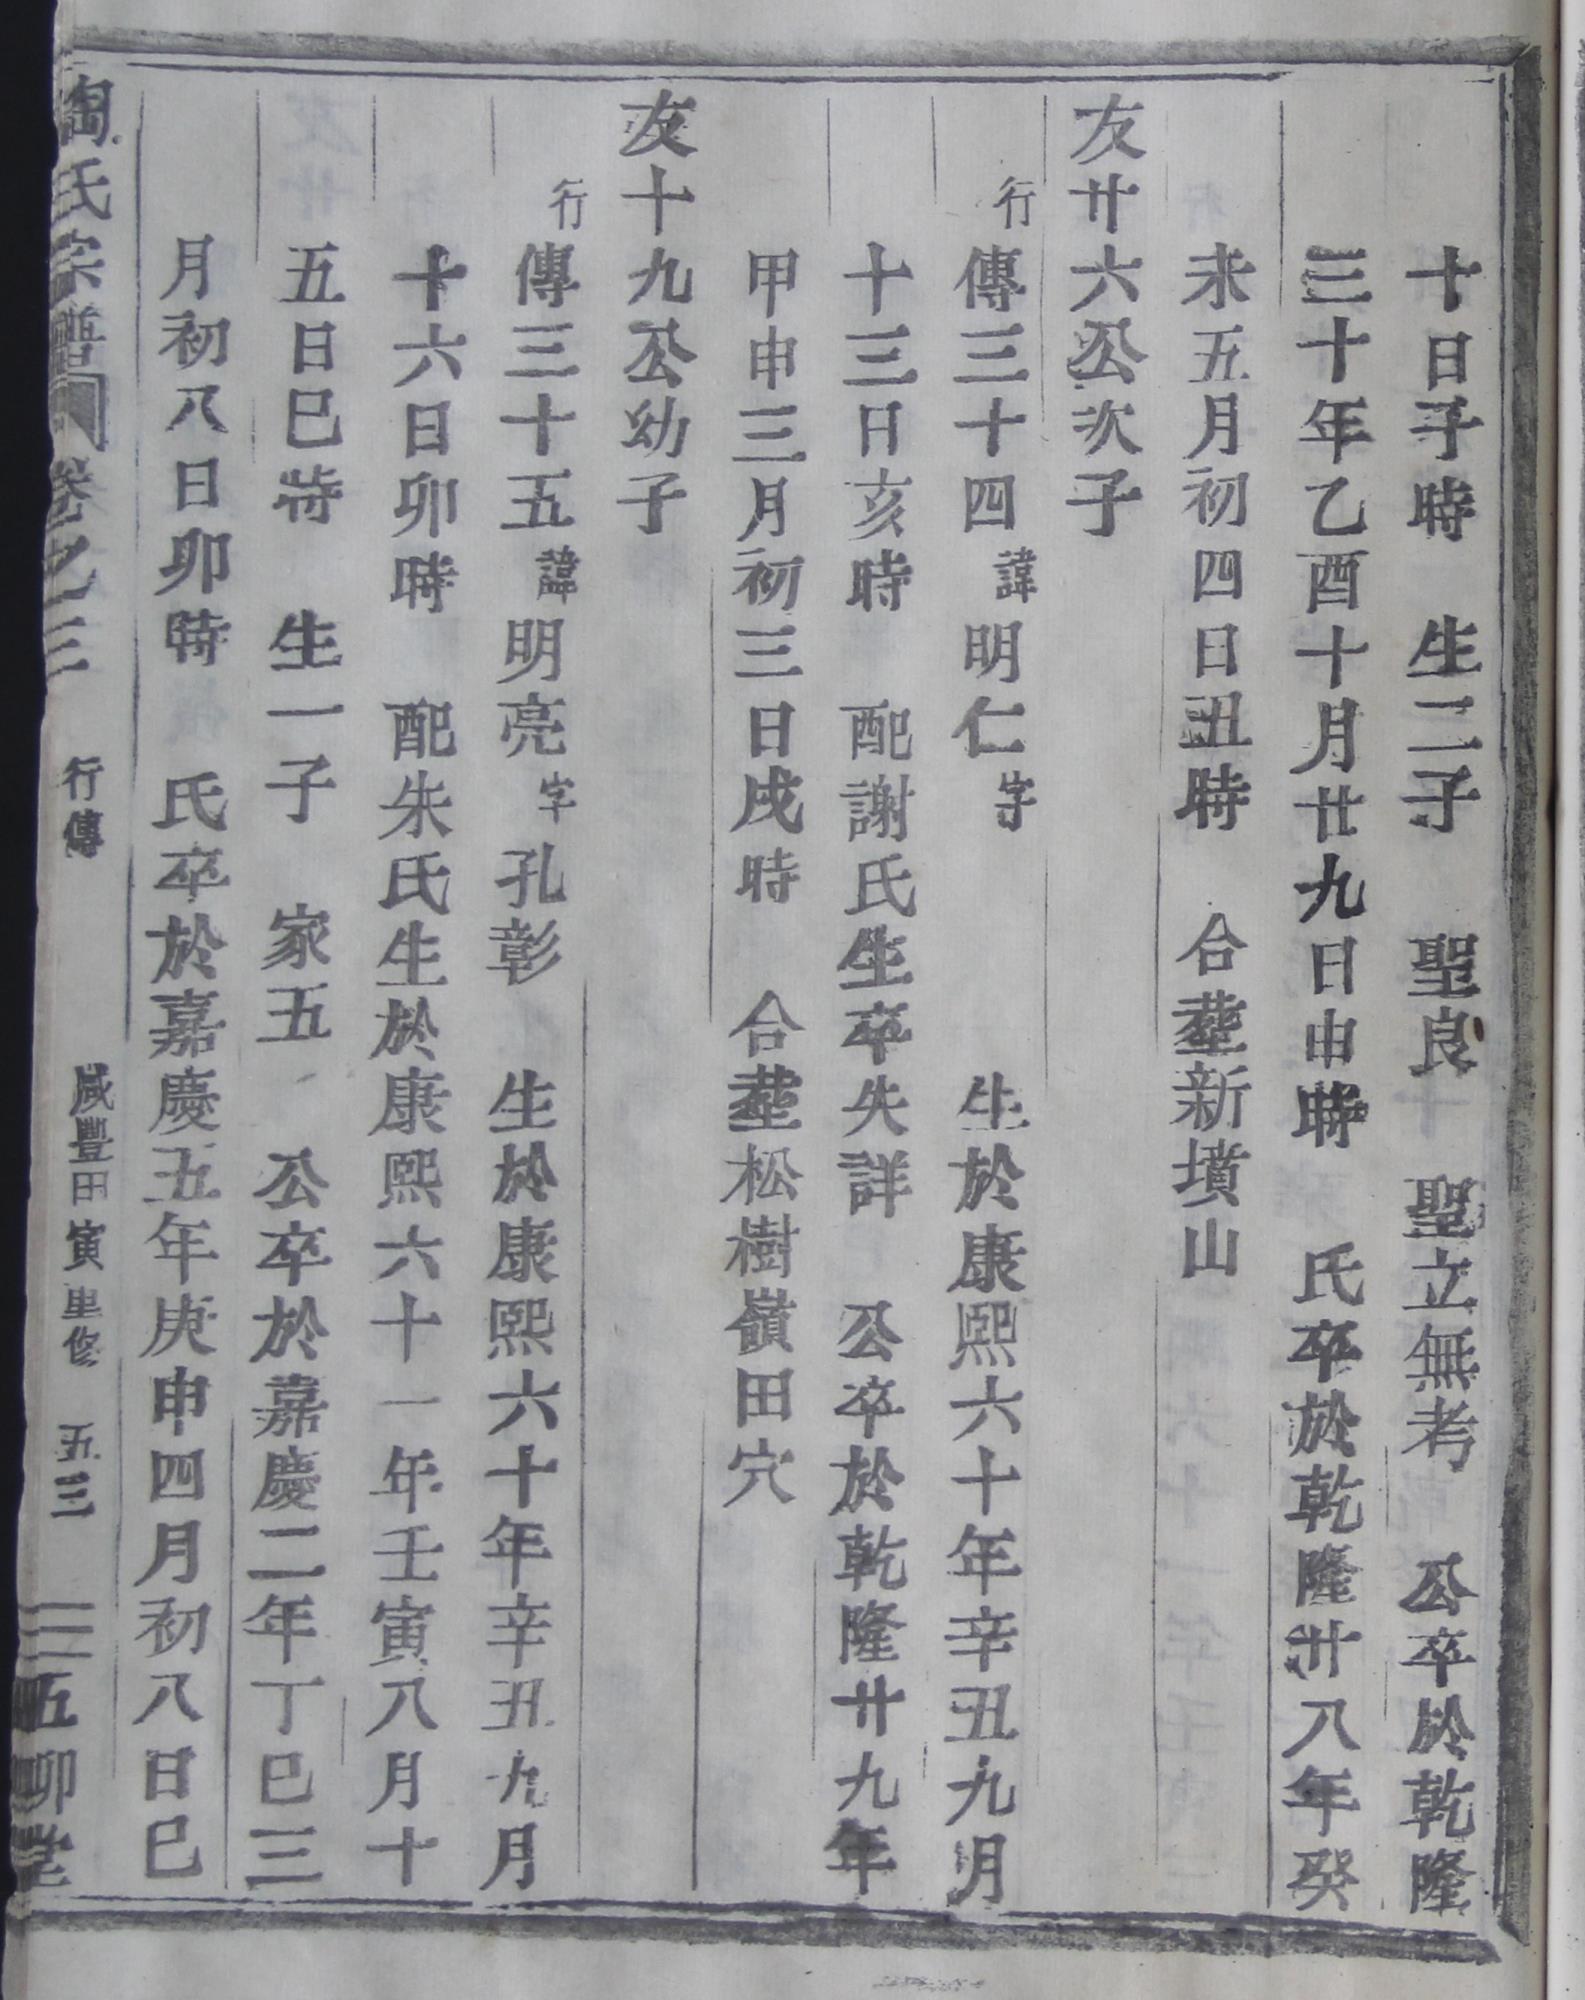 十日子時 生二子 聖良 聖立無考 公卒於乾隆
三十年乙酉十月廿九日申時 氏卒於乾隆卅八年癸
未五月初四日丑時 合塟新墳山
友廿六公次子
行傳三十四諱明仁字 生於康熙六十年辛丑九月
十三日亥時 配謝氏生卒失詳 公卒於乾隆廿九年
甲申三月初三日戌時 合塟松樹嶺田穴
友十九公幼子
行傳三十五諱明亮字孔彰 生於康熙六十年辛丑九月
十六日卯時 配朱氏生於康熙六十一年壬寅八月十
五日巳時 生一子 家五 公卒於嘉慶二年丁巳三
月初八日卯時 氏卒於嘉慶五年庚申四月初八日巳
陶氏宗譜 卷之三 行傳 咸豐田寅里修 五三 五柳堂